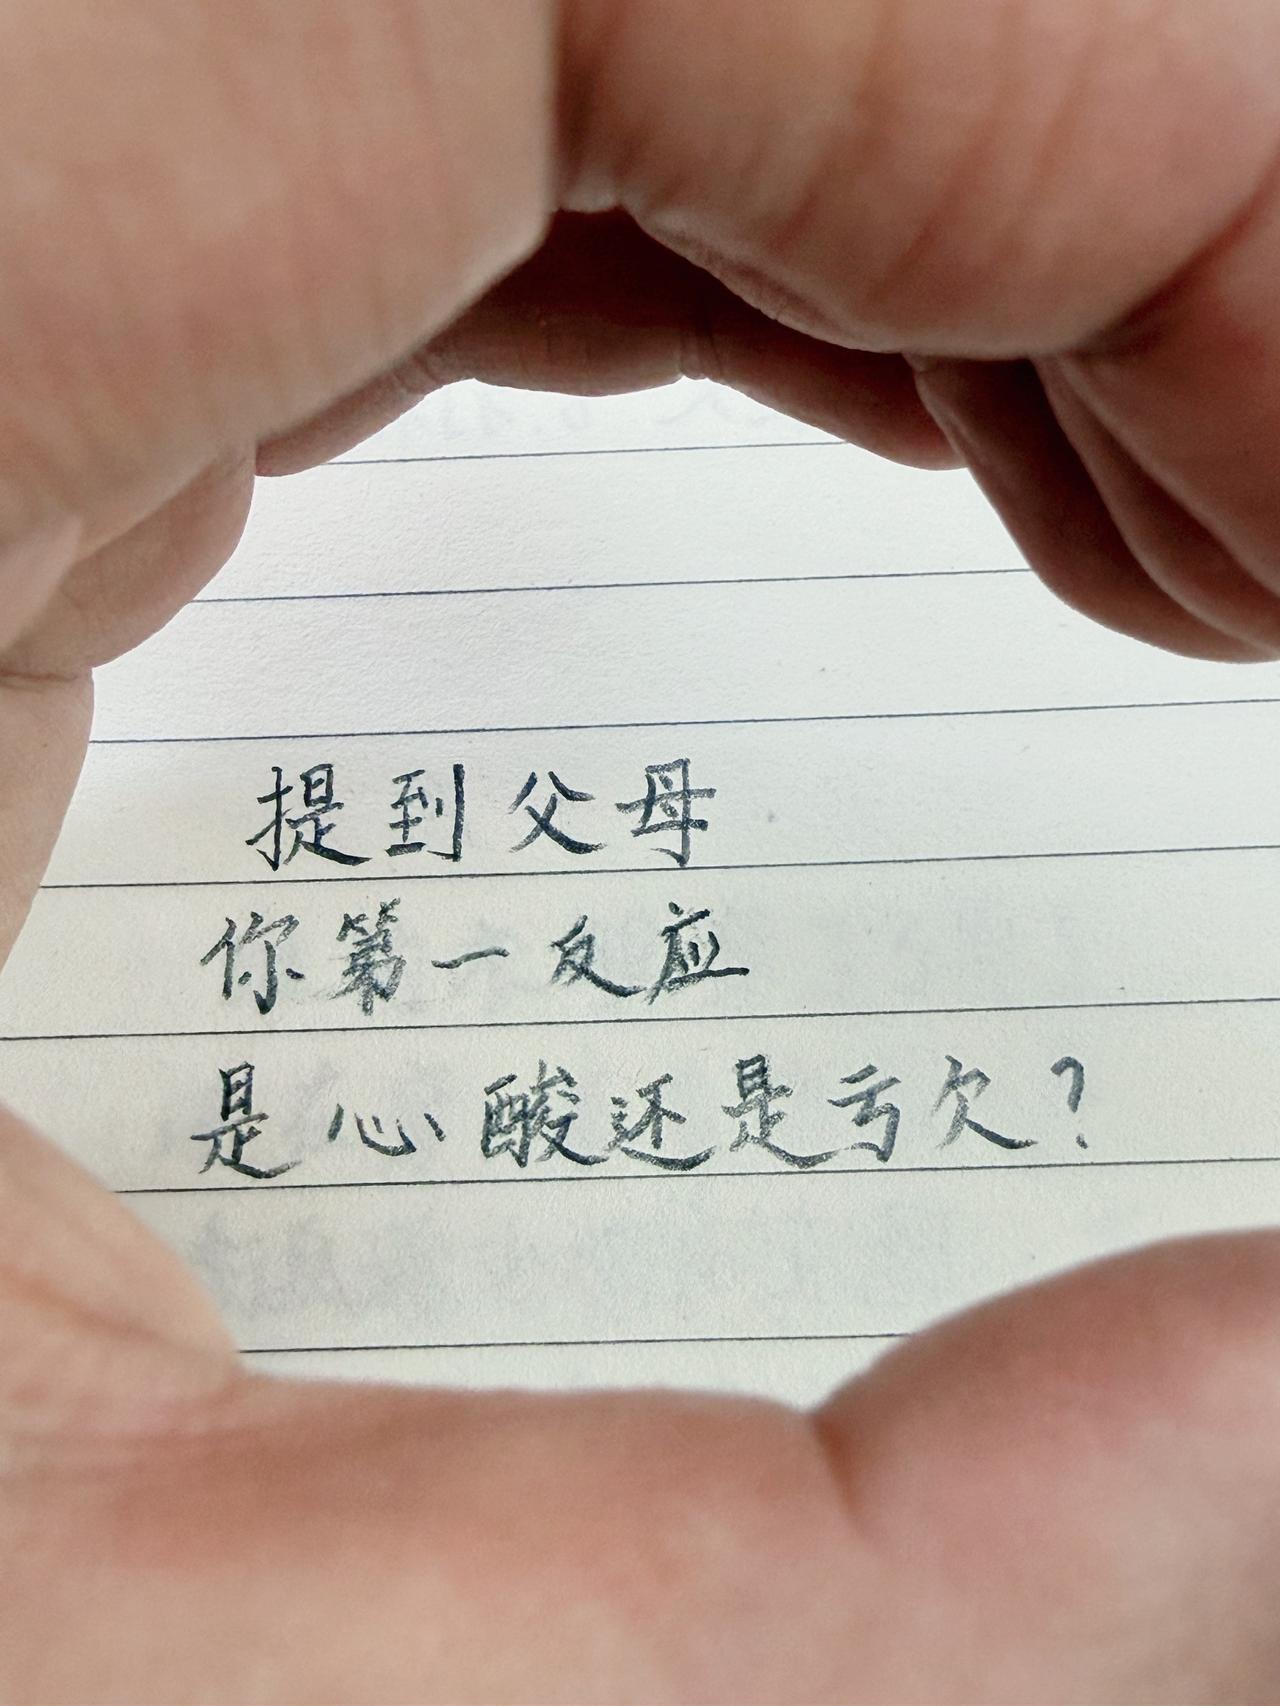 提到父母
你第一反应
是心酸还是亏欠？